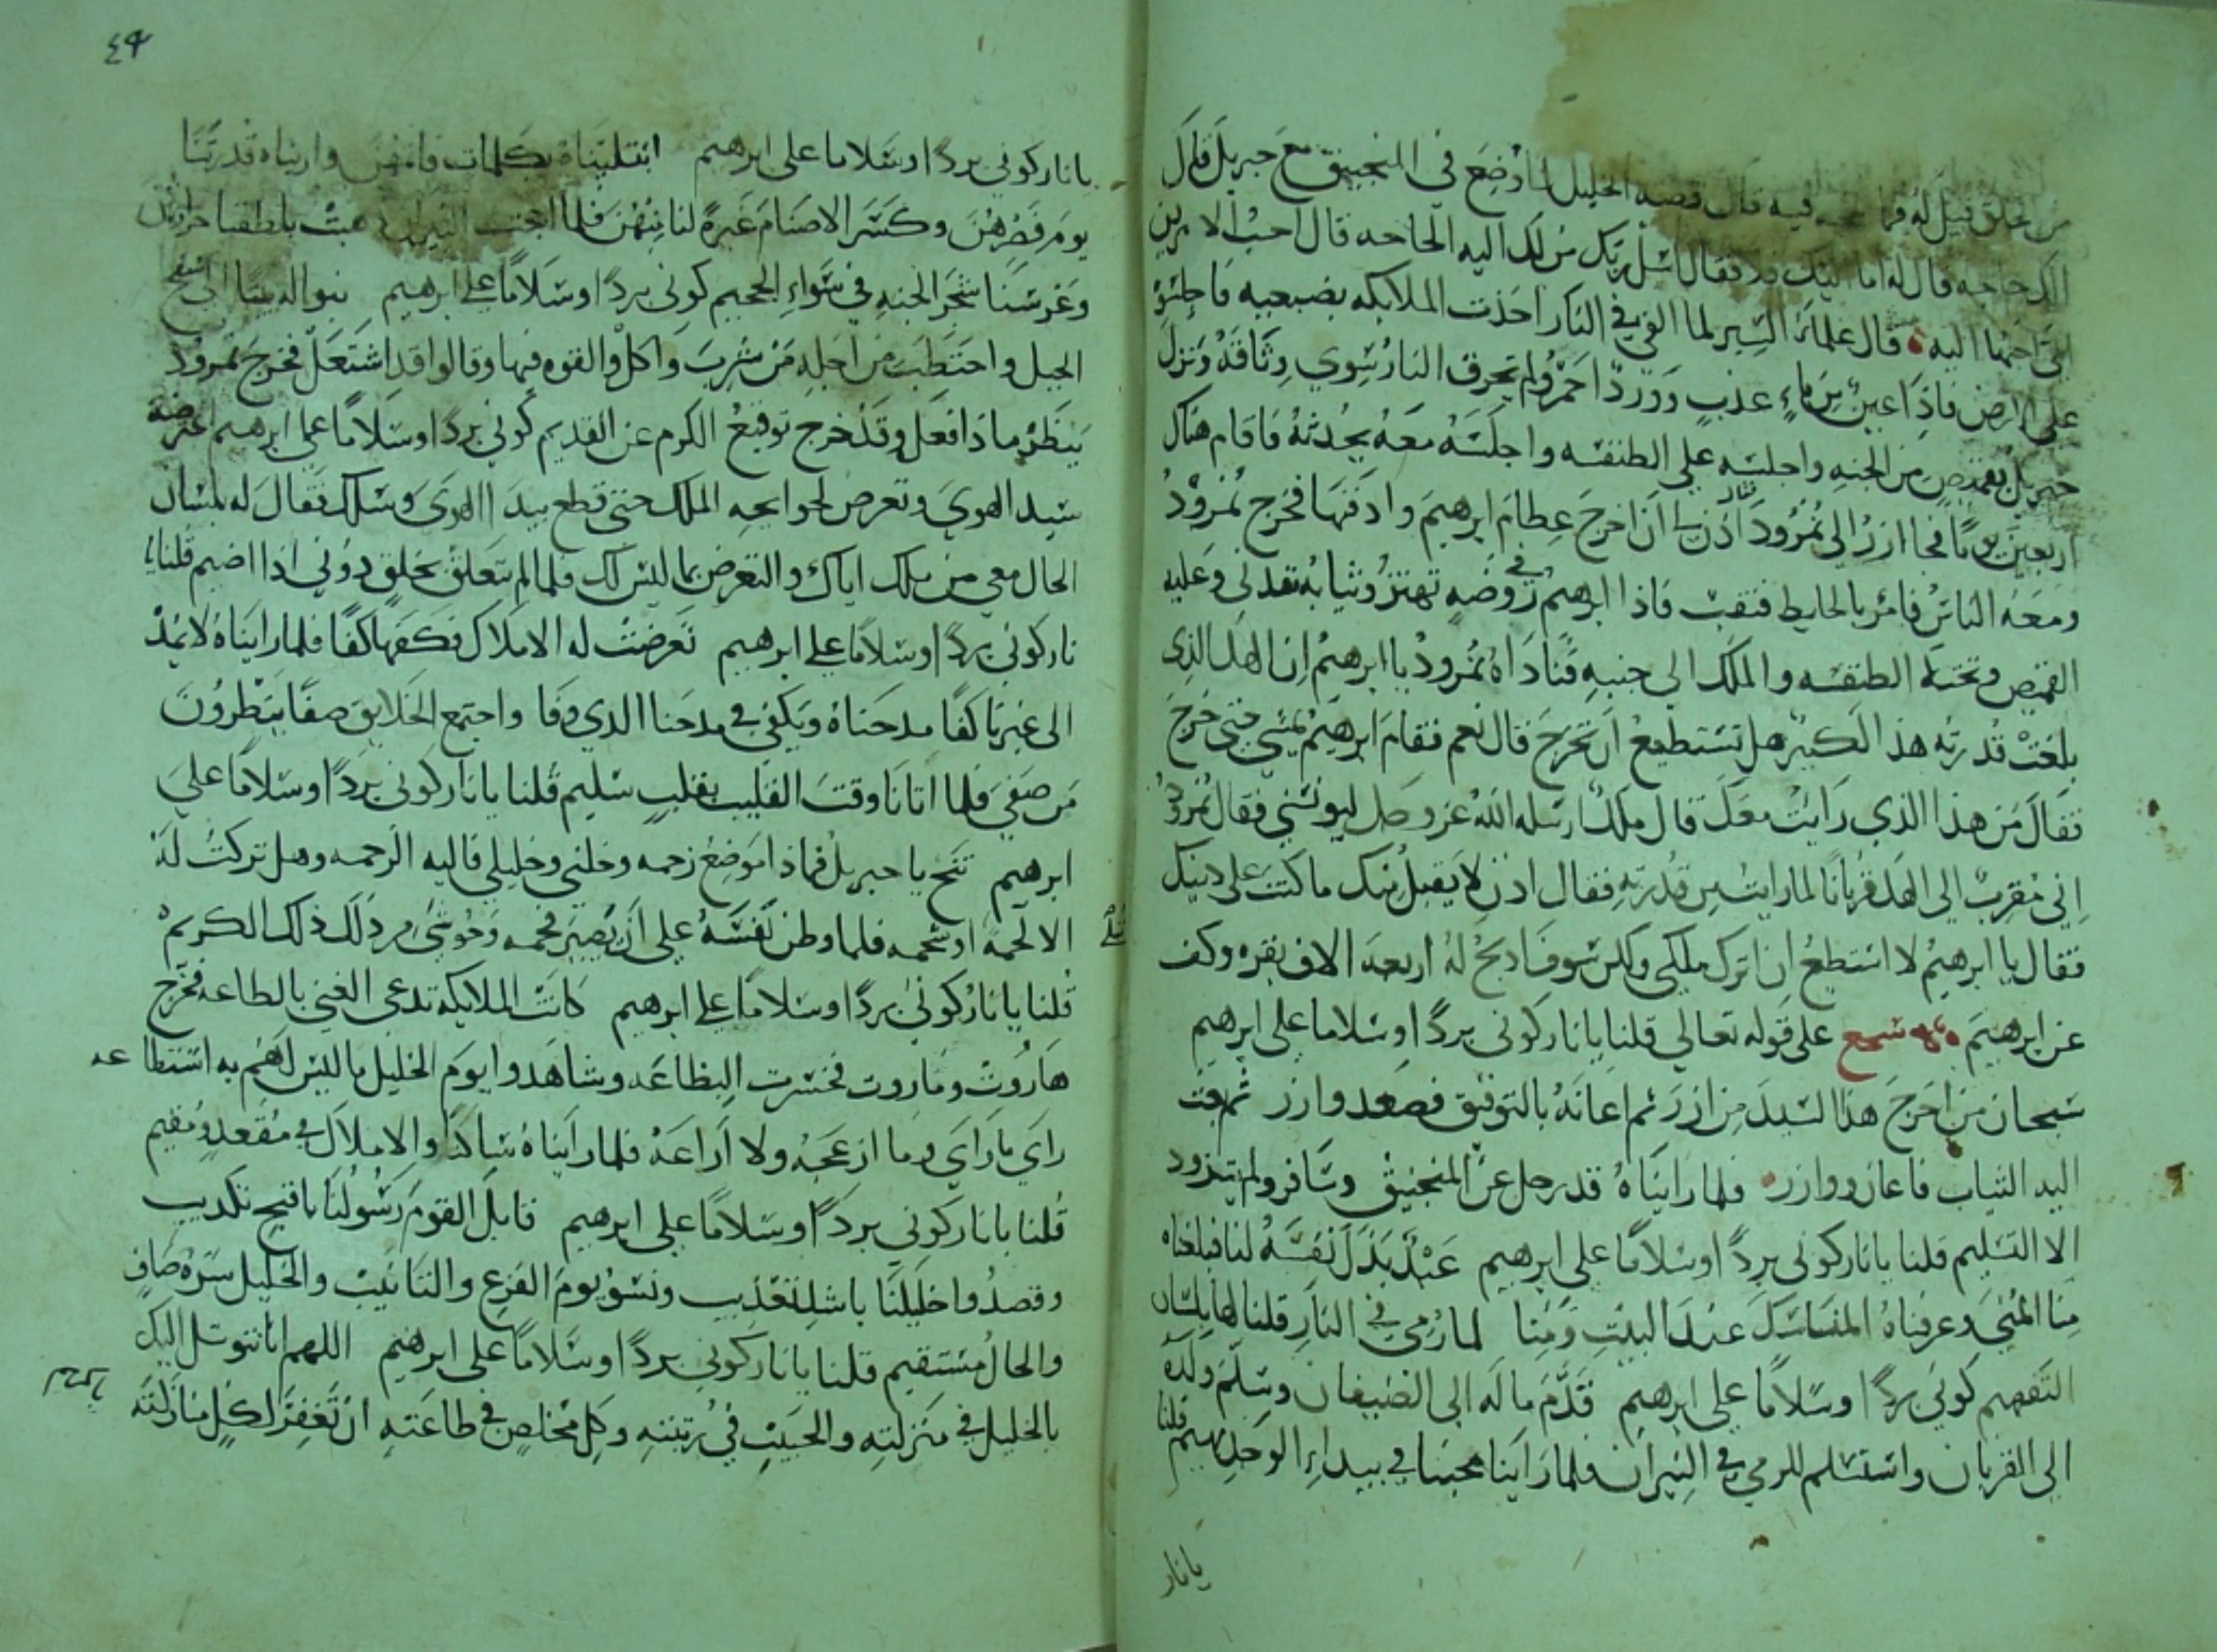 من خلق قيل له فما قال قصته الخليل لما وضع في المنجنيق مع جبريل قال
الك حاجه قال له اما اليك فلا فقال اسل ربك من لك اليه الحاجه قال احب الامرين
الي احبهما اليه قال علماء السير لما القي في النار اخذت الملايكه بضبعيه فاجلسوه
علي الارض فاذا عين من ماء عذب وورد احمر ولم تحرق النار سوي وثاقه ونزل
جبريل بقميص من الجنه واجلسه علي الطنفسه واجلسه معه يحدثه فاقام هناك
اربعين يوما فجا ازر الي نمرود فقال اذن لي ان اخرج عظام ابرهيم وادفنها فخرج نمرود
ومعه الناس فامر بالحايط فنقب فاذا ابرهيم في روضه تهتز وثيابه تندي وعليه
القميص وتحته الطنفسه والملك الي جنبه فناداه نمرود يا ابرهيم ان الهك الذي
بلغت قدرته هذا لكبير هل تستطيع ان تخرج قال نعم فقام ابرهيم يمشي حتى خرج
فقال من هذا الذي رايت معك قال ملك ارسله الله عز وجل ليونسني فقال نمرود
اني مقرب الي الهك قربانا لما رايت من قدرته فقال اذن لا يقبل منك ما كنت على دينك
فقال يا ابرهيم لا استطيع ان اترك ملكي ولكن سوف اذبح له اربعه الاف بقره وكف
عن ابرهيم سجع على قوله تعالي قلنا يا نار كوني بردا وسلاما على ابرهيم
سبحان من اخرج هذا السيد من ازر ثم اعانه بالتوفيق فصعد وازر ثم بعث
اليه الثياب فاعان ووازر فلما رايناه قد رحل عن المنجنيق وسافر ولم يتزود
الا التسليم قلنا يا نار كوني بردا وسلاما على ابرهيم عبد بذل نفسه لنا فبلغناه
منا المني وعرفناه المناسك عند البيت ومنا لما رمي في النار قلنا لها بلسان
التفهيم كوني بردا وسلاما علي ابرهيم قدم ماله الى الضيفان وسلم ولده
الي القربان واستسلم للرمي في النيران فلما راينا محبنا في بيداء الوجد يهيم قلنا
يا نار
٤٩
يا نار كوني بردا وسلاما على ابرهيم ابتليناه بكلمات فاتمهن واريناه قدرتنا
يوم فصرهن وكسر الاصنام غيرة لنا منهن فلما النيران هبت بلطفنا
وغرسنا شجر الجنه في سواء الجحيم كوني بردا وسلاما علي ابرهيم بنوا له بنيانا الى سفح
الجبل واحتطب من اجله من شرب واكل والقوه فيها وقالوا قد اشتعل فخرج نمرود
ينظر ما ذا فعل وقد خرج توقيع الكرم من القديم كوني بردا وسلاما على ابرهيم اعترضه
سيد الهوي وتعرض لحوايجه الملك حتى قطع بيد الهوى وسلك فقال له بلسان
الحال معي من يملك اياك والتعرض بما ليس لك فلما لم يتعلق بخلق دوني اذا اضيم قلنا يا
نار كوني بردا وسلاما علي ابرهيم تعرضت له الاملاك فكفها كفا فلما رايناه لا يمد
الى غيرنا كفا مدحناه ويكفي في مدحنا الذي وفا واجتمع الخلايق صفا ينتظرون
من صفي فلما اتانا وقت القليب بقلب سليم قلنا يا نار كوني بردا وسلاما علي
ابرهيم تنح يا جبريل فما ذا موضع زحمه وخلني وخليلي فاليه الرحمه وهل تركت له
الا لحمه او شحمه فلما وطن نفسه علي ان يصير فحمه وحوشي من ذلك ذلك الكريم
قلنا يا نار كوني بردا وسلاما علي ابرهيم كانت الملايكه تدعي الغني بالطاعه فخرج
هاروت وماروت فخسرت البضاعه وشاهدوا يوم الخليل ما ليس لهم به استطاعه
راي ما راي وما ازعجه ولا اراعه فلما رايناه ساكنا والاملاك في مقعد ومقيم
قلنا يا نار كوني بردا وسلاما علي ابرهيم قابل القوم رسولنا باقبح تكذيب
وقصدوا خليلنا باشد تعذيب ونسوا يوم الفزع والتانيب والخليل سره صاف
والحال مستقيم قلنا يا نار كوني بردا وسلاما علي ابرهيم اللهم انا نتوسل اليك
بالخليل في منزلته والحبيب في رتبته وكل مخلص في طاعته ان تغفر لكل منا زلته